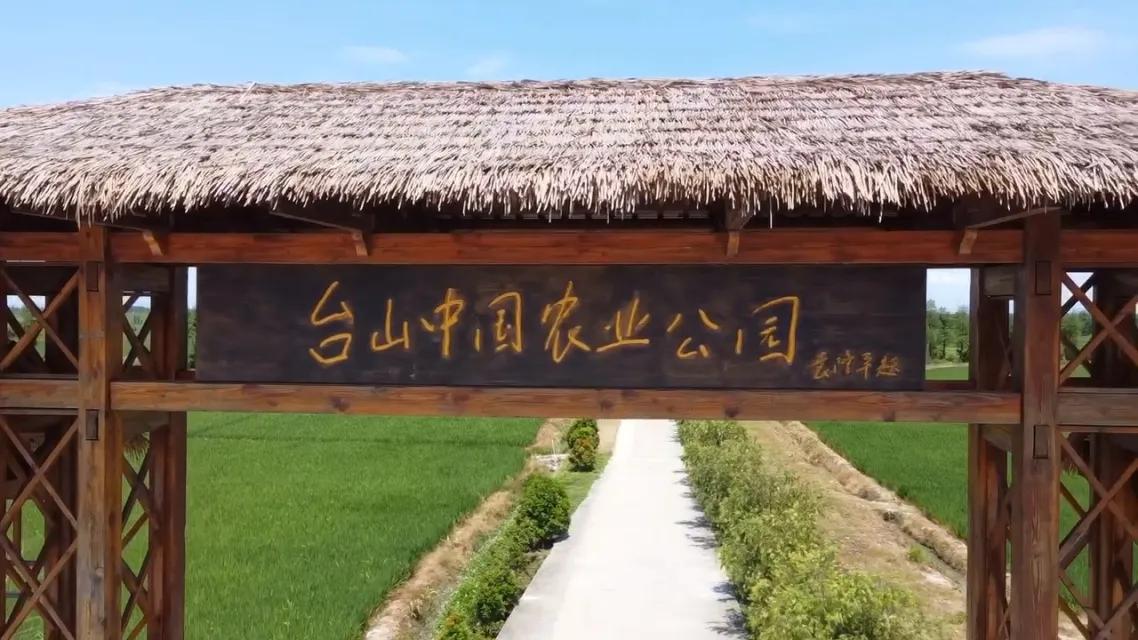 台山中国农业公园
袁隆平题